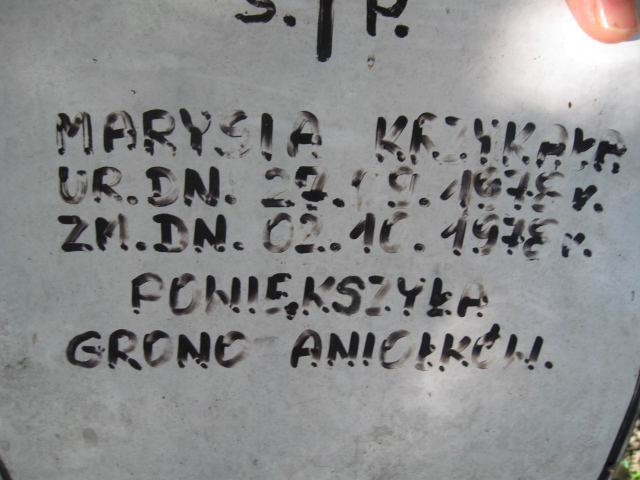 Ś. P.
MARYSIA KRZYKAŁA
UR. DN. 27.09.1978 r.
ZM. DN. 02.10.1978 r.
POWIĘKSZYŁA
GRONO ANIOŁKÓW.